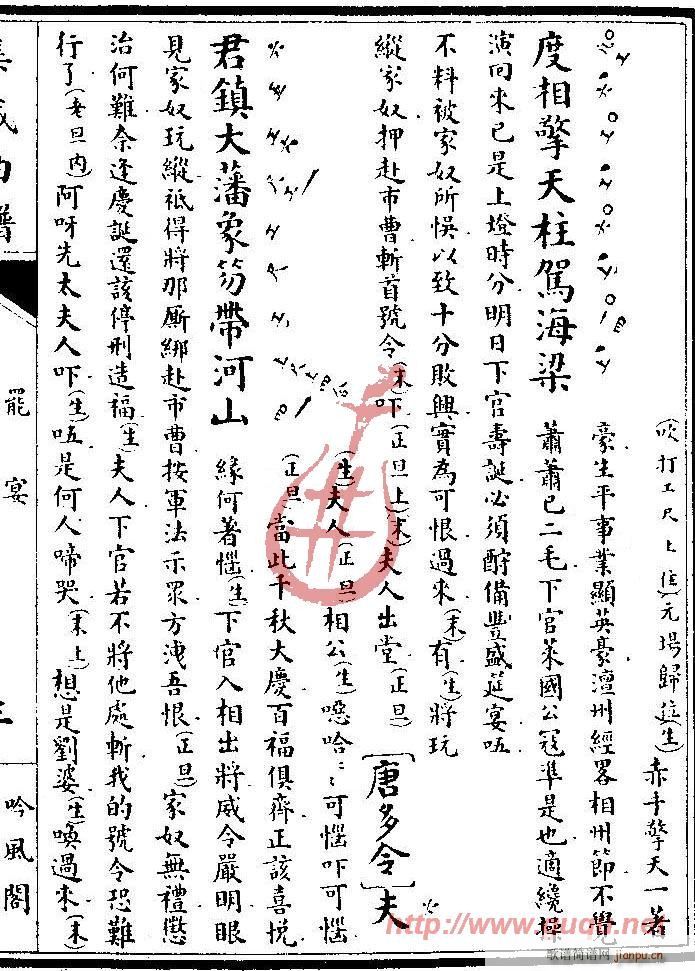 度相擎天柱駕海梁
(吹打工尺上住)元場歸位(生)赤手擎天一著
豪生平事業顯英豪澶州經畧相州節不覺
蕭蕭已二毛下官萊國公寇準是也適纔操
演回來已是上燈時分明日下官壽誕必須酧備豐盛筵宴咗
不料被家奴所悞以致十分敗興實為可恨過來(末)有(生)將玩
縱家奴押赴市曹斬首號令(末)吓(正旦上)(末)夫人出堂(正旦)[唐多令]夫
君鎮大藩象笏帶河山
(生)夫人(正旦)相公(生)噁哈哈可惱吓可惱
(正旦)當此千秋大慶百福俱齊正該喜悅
緣何著惱(生)下官入相出將威令嚴明眼
見家奴玩縱祗得將那厮綁赴市曹按軍法示眾方洩吾恨(正旦)家奴無禮懲
治何難奈逢慶誕還該停刑造福(生)夫人下官若不將他處斬我的號令恐難
行了(老旦內)阿呀先太夫人吓(生)咗是何人啼哭(末上)想是劉婆(生)喚過來(末)
集成曲譜
罷宴
吟風閣
http://www.ququn.net
歌谱简谱网
jianpu.cn